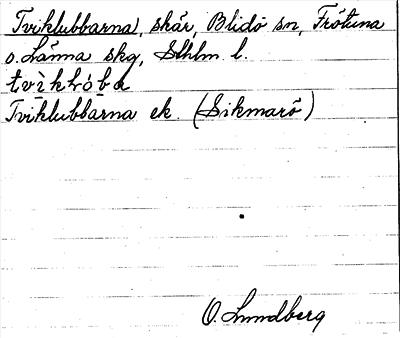 Tviklubbarna, skär, Blidö sn, Frötuna
o. Länna skg, Sthlm. l.
Tviklubbarna ek. (Sikmarö)
O. Lundberg